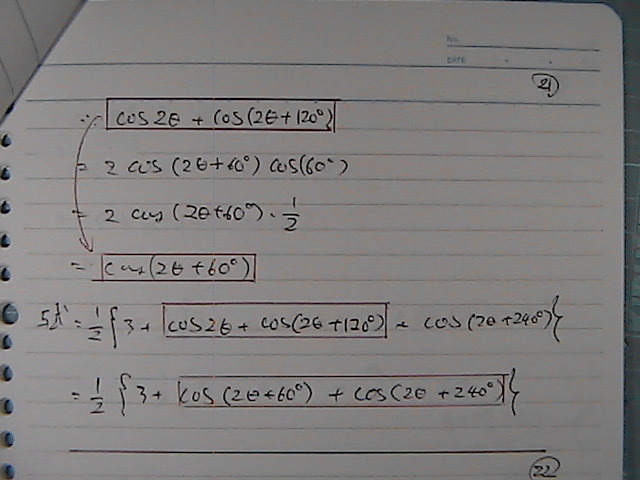 No.
DATE
21
∴ cos 2θ + cos(2θ+120°)
= 2 cos (2θ+60°) cos(60°)
= 2 cos (2θ+60°) · 1/2
= cos(2θ+60°)
= 1/2 { 3 + cos2θ + cos(2θ+120°) + cos(2θ+240°) }
= 1/2 { 3 + cos(2θ+60°) + cos(2θ+240°) }
22